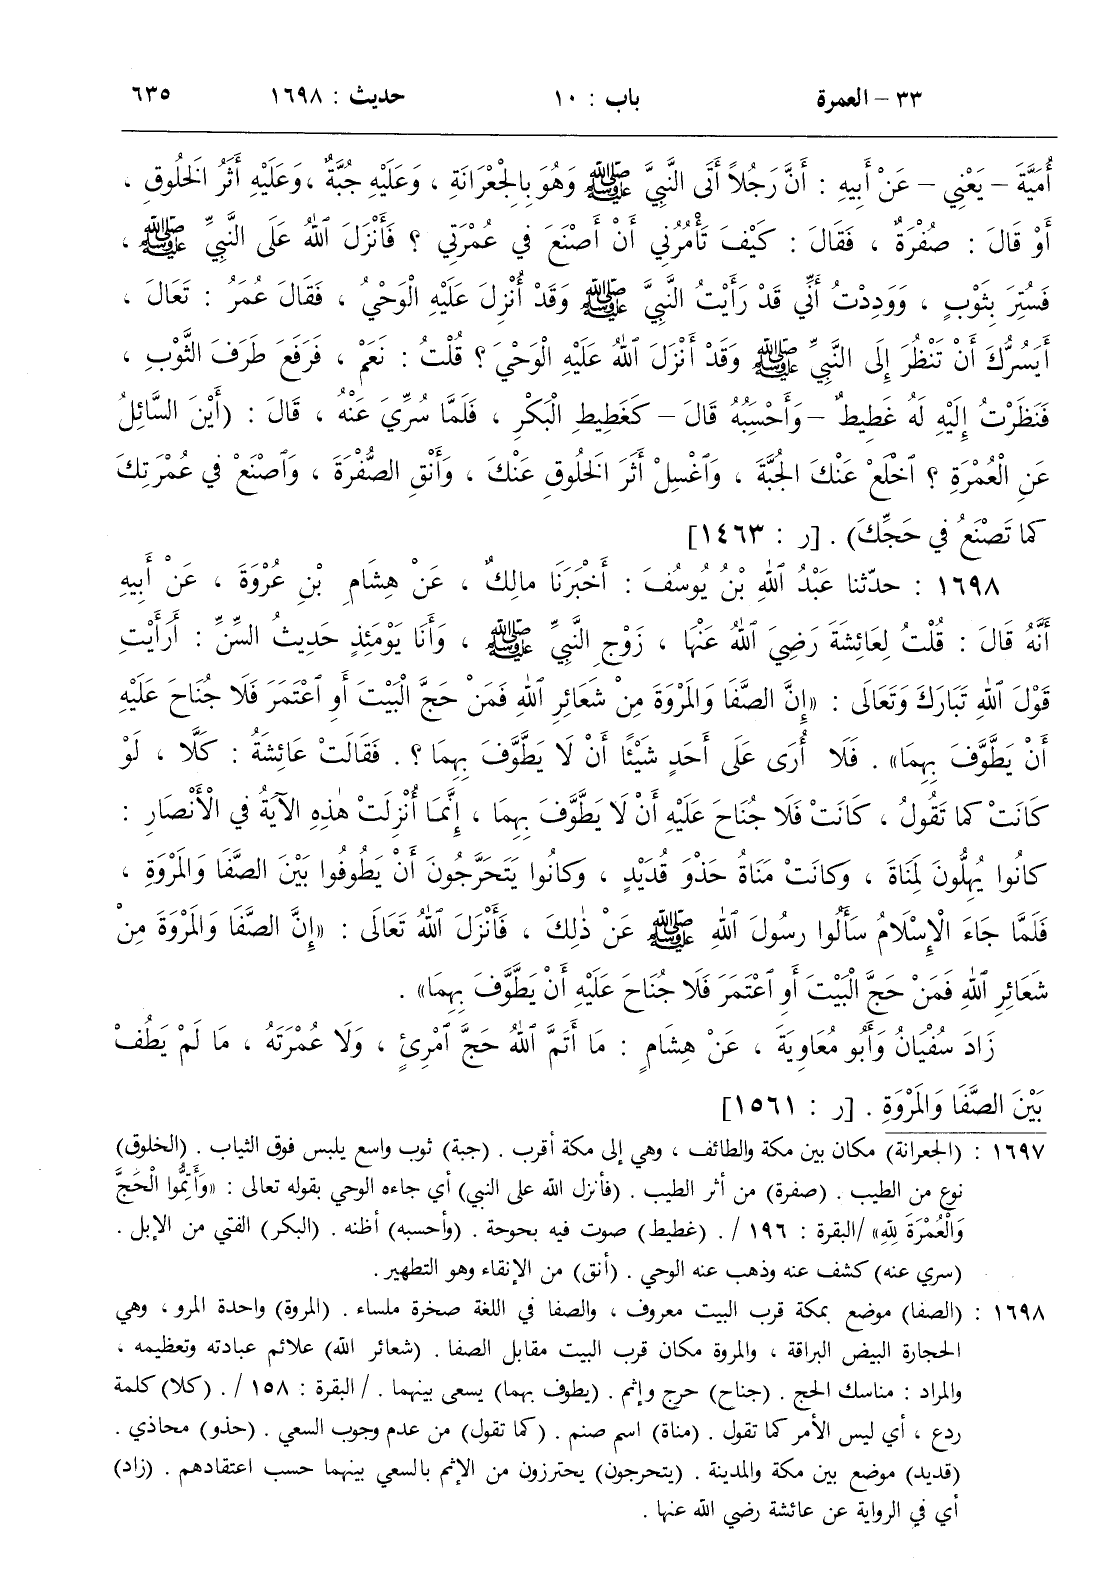 ٣٣ - العمرة باب : ١٠ حديث : ١٦٩٨ ٦٣٥
أُمَيَّةَ - يَعْنِي - عَنْ أَبِيهِ : أَنَّ رَجُلاً أَتَى النَّبِيَّ ﷺ وَهُوَ بِالْجِعْرَانَةِ ، وَعَلَيْهِ جُبَّةٌ ، وَعَلَيْهِ أَثَرُ الْخَلُوقِ ،
أَوْ قَالَ : صُفْرَةٌ ، فَقَالَ : كَيْفَ تَأْمُرُنِي أَنْ أَصْنَعَ فِي عُمْرَتِي ؟ فَأَنْزَلَ ٱللهُ عَلَى النَّبِيِّ ﷺ ،
فَسُتِرَ بِثَوْبٍ ، وَوَدِدْتُ أَنِّي قَدْ رَأَيْتُ النَّبِيَّ ﷺ وَقَدْ أُنْزِلَ عَلَيْهِ الْوَحْيُ ، فَقَالَ عُمَرُ : تَعَالَ ،
أَيَسُرُّكَ أَنْ تَنْظُرَ إِلَى النَّبِيِّ ﷺ وَقَدْ أَنْزَلَ ٱللهُ عَلَيْهِ الْوَحْيَ ؟ قُلْتُ : نَعَمْ ، فَرَفَعَ طَرَفَ الثَّوْبِ ،
فَنَظَرْتُ إِلَيْهِ لَهُ غَطِيطٌ - وَأَحْسِبُهُ قَالَ - كَغَطِيطِ الْبَكْرِ ، فَلَمَّا سُرِّيَ عَنْهُ ، قَالَ : (أَيْنَ السَّائِلُ
عَنِ الْعُمْرَةِ ؟ ٱخْلَعْ عَنْكَ الْجُبَّةَ ، وَٱغْسِلْ أَثَرَ الْخَلُوقِ عَنْكَ ، وَأَنْقِ الصُّفْرَةَ ، وَٱصْنَعْ فِي عُمْرَتِكَ
كما تَصْنَعُ فِي حَجِّكَ) . [ر : ١٤٦٣]
١٦٩٨ : حدّثنا عَبْدُ ٱللهِ بْنُ يُوسُفَ : أَخْبَرَنَا مالِكٌ ، عَنْ هِشَامِ بْنِ عُرْوَةَ ، عَنْ أَبِيهِ
أَنَّهُ قَالَ : قُلْتُ لِعَائِشَةَ رَضِيَ ٱللهُ عَنْهَا ، زَوْجِ النَّبِيِّ ﷺ ، وَأَنَا يَوْمَئِذٍ حَدِيثُ السِّنِّ : أَرَأَيْتِ
قَوْلَ ٱللهِ تَبَارَكَ وَتَعَالَى : «إِنَّ الصَّفَا وَالمَرْوَةَ مِنْ شَعَائِرِ ٱللهِ فَمَنْ حَجَّ الْبَيْتَ أَوِ ٱعْتَمَرَ فَلَا جُنَاحَ عَلَيْهِ
أَنْ يَطَّوَّفَ بِهِمَا» . فَلَا أُرَى عَلَى أَحَدٍ شَيْئًا أَنْ لَا يَطَّوَّفَ بِهِمَا ؟ . فَقَالَتْ عَائِشَةُ : كَلَّا ، لَوْ
كَانَتْ كما تَقُولُ ، كَانَتْ فَلَا جُنَاحَ عَلَيْهِ أَنْ لَا يَطَّوَّفَ بِهِمَا ، إِنَّمَا أُنْزِلَتْ هٰذِهِ الآيَةُ فِي الْأَنْصَارِ :
كانُوا يُهِلُّونَ لِمَنَاةَ ، وَكانَتْ مَنَاةُ حَذْوَ قُدَيْدٍ ، وَكانُوا يَتَحَرَّجُونَ أَنْ يَطُوفُوا بَيْنَ الصَّفَا وَالمَرْوَةِ ،
فَلَمَّا جَاءَ الْإِسْلَامُ سَأَلُوا رسُولَ ٱللهِ ﷺ عَنْ ذٰلِكَ ، فَأَنْزَلَ ٱللهُ تَعَالَى : «إِنَّ الصَّفَا وَالمَرْوَةَ مِنْ
شَعَائِرِ ٱللهِ فَمَنْ حَجَّ الْبَيْتَ أَوِ ٱعْتَمَرَ فَلَا جُنَاحَ عَلَيْهِ أَنْ يَطَّوَّفَ بِهِمَا» .
زَادَ سُفْيَانُ وَأَبُو مُعَاوِيَةَ ، عَنْ هِشَامٍ : ما أَتَمَّ ٱللهُ حَجَّ ٱمْرِئٍ ، وَلَا عُمْرَتَهُ ، مَا لَمْ يَطُفْ
بَيْنَ الصَّفَا وَالمَرْوَةِ . [ر : ١٥٦١]
١٦٩٧ : (الجعرانة) مكان بين مكة والطائف ، وهي إلى مكة أقرب . (جبة) ثوب واسع يلبس فوق الثياب . (الخلوق)
نوع من الطيب . (صفرة) من أثر الطيب . (فأنزل الله على النبي) أي جاءه الوحي بقوله تعالى : «وَأَتِمُّوا الْحَجَّ
وَالْعُمْرَةَ لِلّٰهِ» /البقرة : ١٩٦ / . (غطيط) صوت فيه بحوحة . (وأحسبه) أظنه . (البكر) الفتي من الإبل .
(سري عنه) كشف عنه وذهب عنه الوحي . (أنق) من الإنقاء وهو التطهير .
١٦٩٨ : (الصفا) موضع بمكة قرب البيت معروف ، والصفا في اللغة صخرة ملساء . (المروة) واحدة المرو ، وهي
الحجارة البيض البراقة ، والمروة مكان قرب البيت مقابل الصفا . (شعائر الله) علائم عبادته وتعظيمه ،
والمراد : مناسك الحج . (جناح) حرج وإثم . (يطوف بهما) يسعى بينهما . / البقرة : ١٥٨ / . (كلا) كلمة
ردع ، أي ليس الأمر كما تقول . (مناة) اسم صنم . (كما تقول) من عدم وجوب السعي . (حذو) محاذي .
(قديد) موضع بين مكة والمدينة . (يتحرجون) يحترزون من الإثم بالسعي بينهما حسب اعتقادهم . (زاد)
أي في الرواية عن عائشة رضي الله عنها .